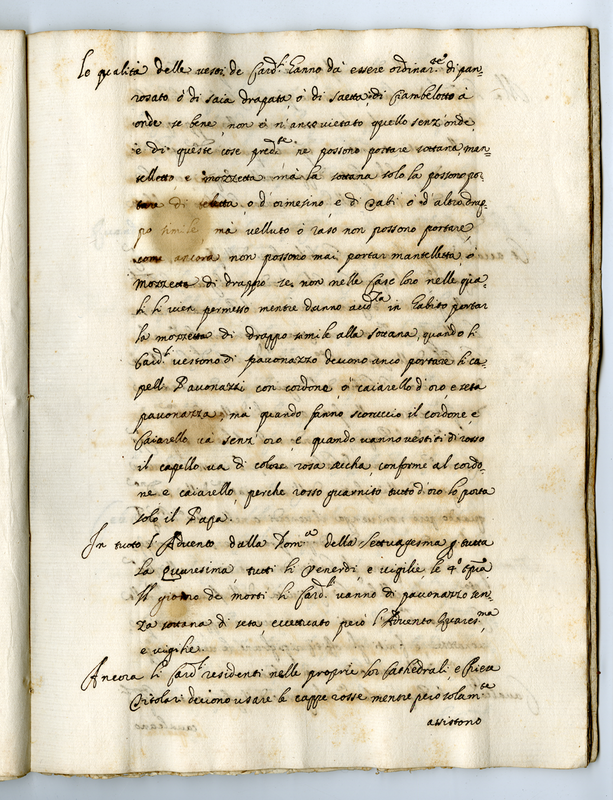 La qualità delle vesti de Card.li hanno da essere ordinar.te di pan=
rosato ò di saia drapata, ò di saetta, di Ciambelotto à
onde se bene non è n'anco vietato quello senz'onde,
e di queste cose pred.te ne possono portare sottana, man=
telletto e mozzetta, mà la sottana solo la possono por
tare di teletta, o d'ormesino, e di Tabi ò d'altro drap=
po simile mà velluto ò raso non possono portare,
come ancora non possono mai portar mantelletta, ò
mozzetta di drappo se non nelle Case loro nelle qua=
li li vien permesso mentre danno aud.za in habito portar
la mozzetta di drappo simile alla sottana, quando li
Card.li vestono di pavonazzo devono anco portare li ca=
pelli Pavonazzi con cordone, ò caiarello d'oro, e seta
pavonazza, mà quando fanno scoruccio il cordone, e
Caiarello và senz'oro, e quando vanno vestiti di rosso
il capello va di colore rosa secha, conforme al cordo=
ne e caiarello, perche rosso guarnito tutto d'oro lo porta
solo il Papa.
In tutto l'Advento dalla Dom.ca della Settuagesima p tutta
la Quaresima tutti li Venerdi, e vigilie le 4.o tpra
Il giorno de morti li Card.li vanno di pavonazzo sen=
za sottana di seta, eccettuato però l'Advento Quares.ma
e vigilie.
Ancora li Card.li residenti nelle proprie lor Cathedrali, e Chiese
Titolari devono usare le cappe rosse mentre però solam.te
assistono